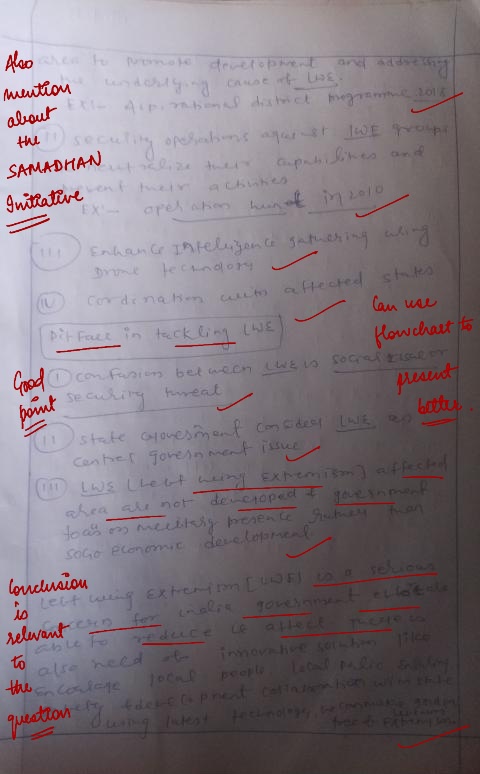 area to promote development and addressing
the underlying cause of LWE.
EX:- Aspirational district programme 2018
II security operations against LWE groups
neutralize their capabilities and
prevent their activities
EX:- operation hunt in 2010
III Enhance Intelligence gathering using
Drone technology
IV Cordenation with affected states
Pitfall in tackling LWE
I confusion between LWE is social issue or
security threat
II state government consider LWE as
centres government issue
III LWE [Left wing extremism] affected
area are not developed & government
focus on military presence rather than
socio economic development
Left wing extremism [LWE] is a serious
concern for india government
able to reduce it affect there is
also need of innovative solution like
Encourage local people, local
development collaboration with state
using latest technology, we can make
free to extremism
Also
mention
about
the
SAMADHAN
Initiative
Can use
flowchart to
present
better.
Good
point
Conclusion
is
relevant
to
the
question